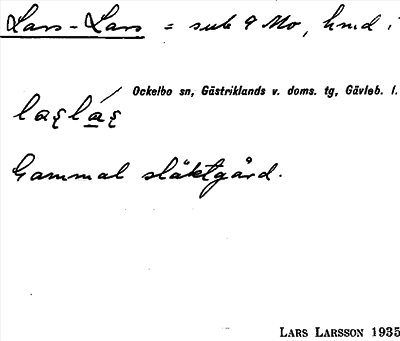 Lars-Lars = sub 9 Mo, hmd i
Ockelbo sn, Gästriklands v. doms. tg, Gävleb. l.
Gammal släktgård.
LARS LARSSON 1935